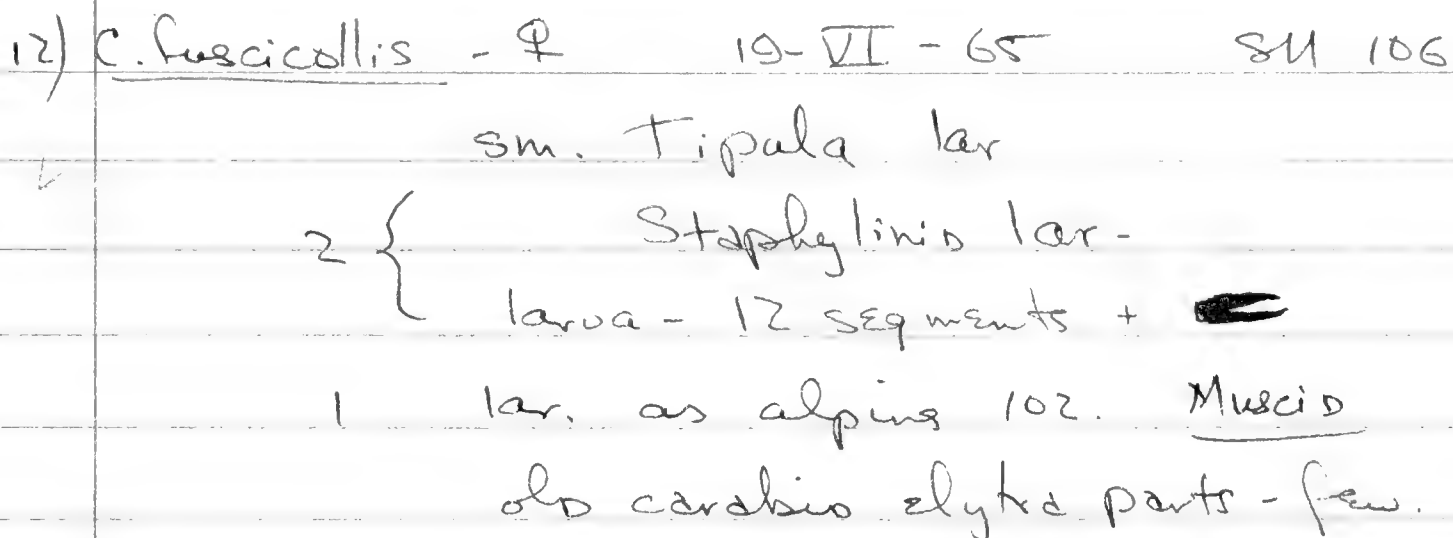 12) C. fuscicollis - ♀ 19-VI-65 SH 106
sm. Tipula lar
2 { Staphylinid lar-
larva - 12 segments +
1 lar. as alpina 102. Muscid
old carabid elytra parts - few.